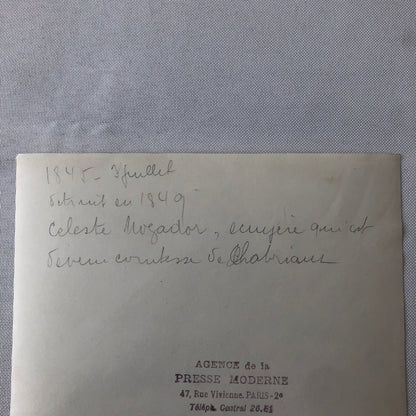 1845 - 3 juillet
detruit en 1849
Celeste Mogador, ecuyère qui est
devenu comtesse de Chabrians
AGENCE de la
PRESSE MODERNE
47, Rue Vivienne, PARIS-2e
Téléph. Central 26.51